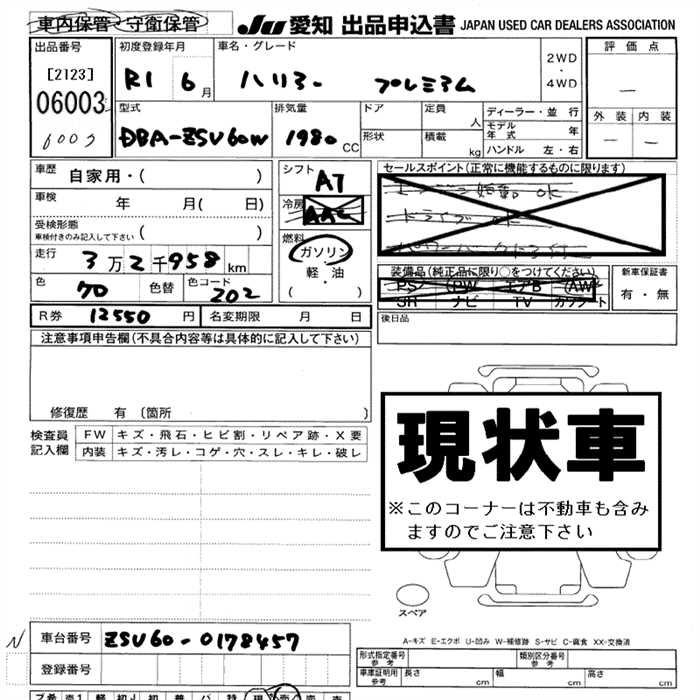 車内保管・守衛保管
JU 愛知 出品申込書 JAPAN USED CAR DEALERS ASSOCIATION
出品番号 初度登録年月 車名・グレード 評価点
[2123] R1 6月 ハリアー プレミアム 2WD・4WD
06003 —
6003
型式 排気量 ドア 定員 人 ディーラー・並行 外装 内装
DBA-ZSU60W 1980 CC 形状 積載 kg モデル年式 年 — —
ハンドル 左・右
車歴 自家用・( ) シフト AT セールスポイント(正常に機能するものに限ります)
車検 年 月( 日) 冷房 AAC エンジン始動 OK
ドライブ OK
受検形態 車検付きのみ記入して下さい ( ) 燃料 ガソリン
走行 3万2千958km 軽・油 装備品(純正品に限り○をつけてください) 新車保証書
色 70 色替 色コード 202 ( ・ ) PS PW エアB AW 有・無
SR ナビ TV カワシート
R券 12550円 名変期限 月 日 後日品
注意事項申告欄(不具合内容等は具体的に記入して下さい)
修復歴 有〔箇所 〕
検査員記入欄 FW キズ・飛石・ヒビ割・リペア跡・X要
内装 キズ・汚レ・コゲ・穴・スレ・キレ・破レ
現状車
※このコーナーは不動車も含み
ますのでご注意下さい
スペア
A-キズ E-エクボ U-凹み W-補修跡 S-サビ C-腐食 XX-交換済
N 車台番号 ZSU60-0178457
登録番号
形式指定番号 参考 類別区分番号 参考
車庫証明用 参考 長さ cm 幅 cm 高さ cm